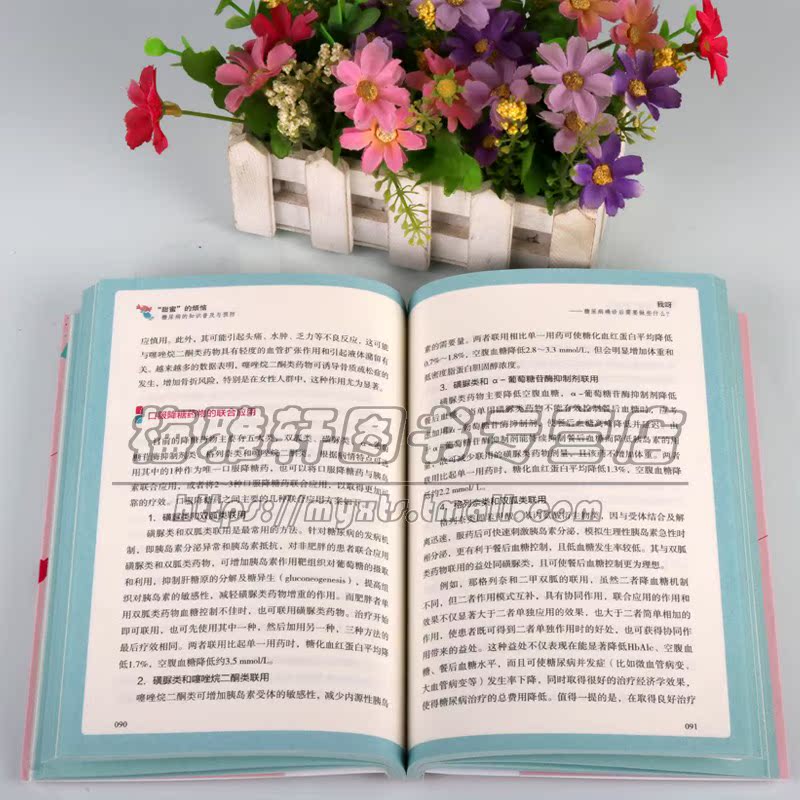 "甜蜜"的烦恼
糖尿病的知识普及与预防
应慎用。此外，其可能引起头痛、水肿、乏力等不良反应，这可能
与噻唑烷二酮类药物具有轻度的血管扩张作用和引起液体潴留有
关。越来越多的数据表明，噻唑烷二酮类药物可诱导骨质疏松症的
发生，增加骨折风险，特别是在女性人群中，这种作用尤为显著。
口服降糖药物的联合应用
目前的降糖药物主要有五大类：双胍类、磺脲类、
糖苷酶抑制剂类、格列奈类和噻唑烷二酮类。根据病情特点可
用其中的1种作为唯一口服降糖药，也可以将口服降糖药与胰岛
素联合应用，或者将2~3种口服降糖药联合应用，以取得更加
的疗效。口服降糖药之间主要的几种联合应用方案如下：
1. 磺脲类和双胍类联用
磺脲类和双胍类联用是最常用的方法。针对糖尿病的发病机
制，即胰岛素分泌异常和胰岛素抵抗，对非肥胖的患者联合应用
磺脲类和双胍类药物，可增加胰岛素作用靶组织对葡萄糖的摄取
和利用，抑制肝糖原的分解及糖异生（gluconeogenesis），提高组
织对胰岛素的敏感性，减轻磺脲类药物增重的作用。而肥胖者单
用双胍类药物血糖控制不佳时，也可联用磺脲类药物。治疗开始
即可联用，也可先使用其中一种，然后加用另一种，三种方法的
最后疗效相同。两者联用比起单一用药时，糖化血红蛋白平均降
低1.7%，空腹血糖降低约3.5 mmol/L。
2. 磺脲类和噻唑烷二酮类联用
噻唑烷二酮类可增加胰岛素受体的敏感性，减少内源性胰岛
090
我呀
——糖尿病确诊后需要做些什么？
素的需要量。两者联用相比单一用药可使糖化血红蛋白平均降低
0.7%~1.8%，空腹血糖降低2.8~3.3 mmol/L，但会明显增加体重和
低密度脂蛋白胆固醇浓度。
3. 磺脲类和α-葡萄糖苷酶抑制剂联用
磺脲类药物主要降低空腹血糖，α-葡萄糖苷酶抑制剂降低
后血糖。单用磺脲类药物不能有效控制餐后血糖
葡萄糖苷酶抑制剂，使餐后血糖高峰降低并延迟
α-葡萄糖苷酶抑制剂能持续抑制餐后血糖，降低胰岛素的
减少联用的磺脲类药物剂量，且该药不增加体重。两者
联用比起单一用药时，糖化血红蛋白平均降低1.3%，空腹血糖降
约2.2 mmol/L。
格列奈类和双胍类联用
离迅速，服药后可快速刺激胰岛素分泌，模拟生理性胰岛素急性时
相分泌，更有利于餐后血糖控制，且低血糖发生率较低。其与双胍
类药物联用的益处同磺脲类，且可使餐后血糖控制更为理想。
例如，那格列奈和二甲双胍的联用，虽然二者降血糖机制
不同，但二者作用模式互补，具有协同作用，联合应用的作用和
效果不仅显著大于二者单独应用的效果，也大于二者简单相加的
作用，使患者既可得到二者单独作用时的好处，也可获得协同作
用带来的益处。这种益处不仅表现在能显著降低HbAlc、空腹血
糖、餐后血糖水平，而且可使糖尿病并发症（比如微血管病变、
大血管病变等）发生率下降，同时取得很好的治疗经济学效果，
使得糖尿病治疗的总费用降低。值得一提的是，在取得良好治疗
091
梅雅轩图书专营店
https://myxts.tmall.com